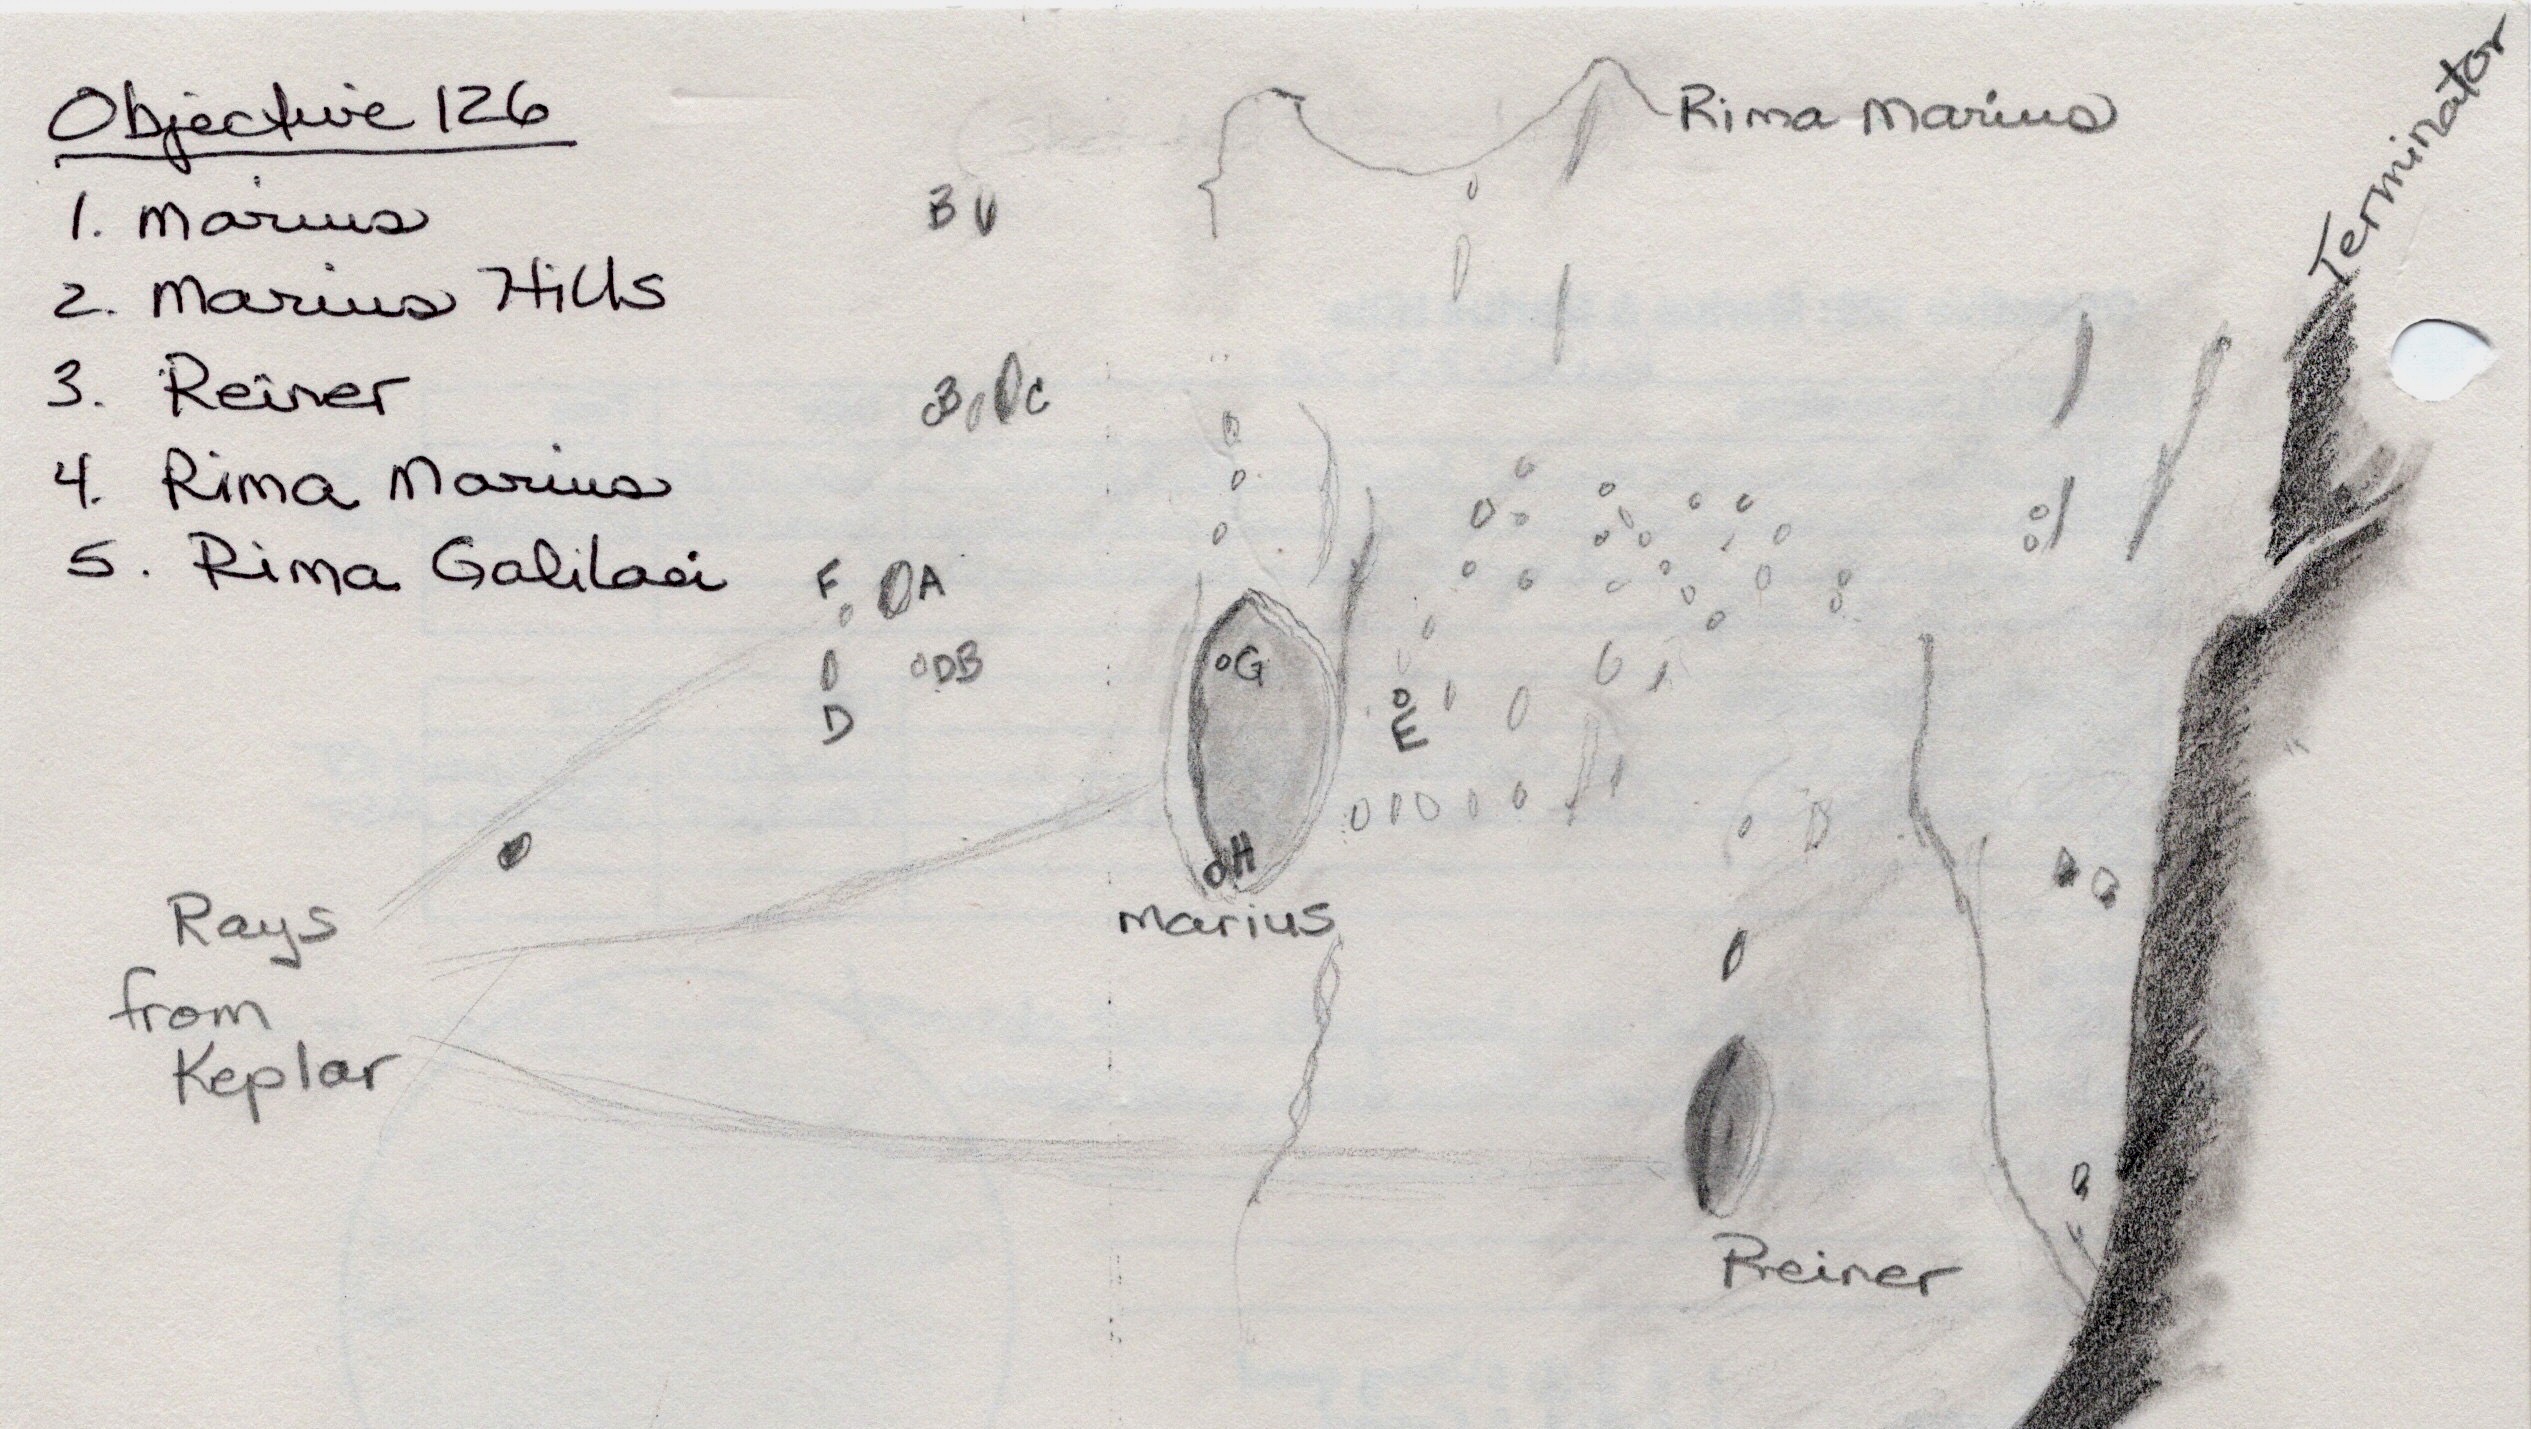 Objective 126
1. Marius
2. Marius Hills
3. Reiner
4. Rima Marius
5. Rima Galilaei
Rima Marius
Terminator
B
B C
F A
D B
D
G
E
H
Marius
Rays
from
Keplar
Reiner